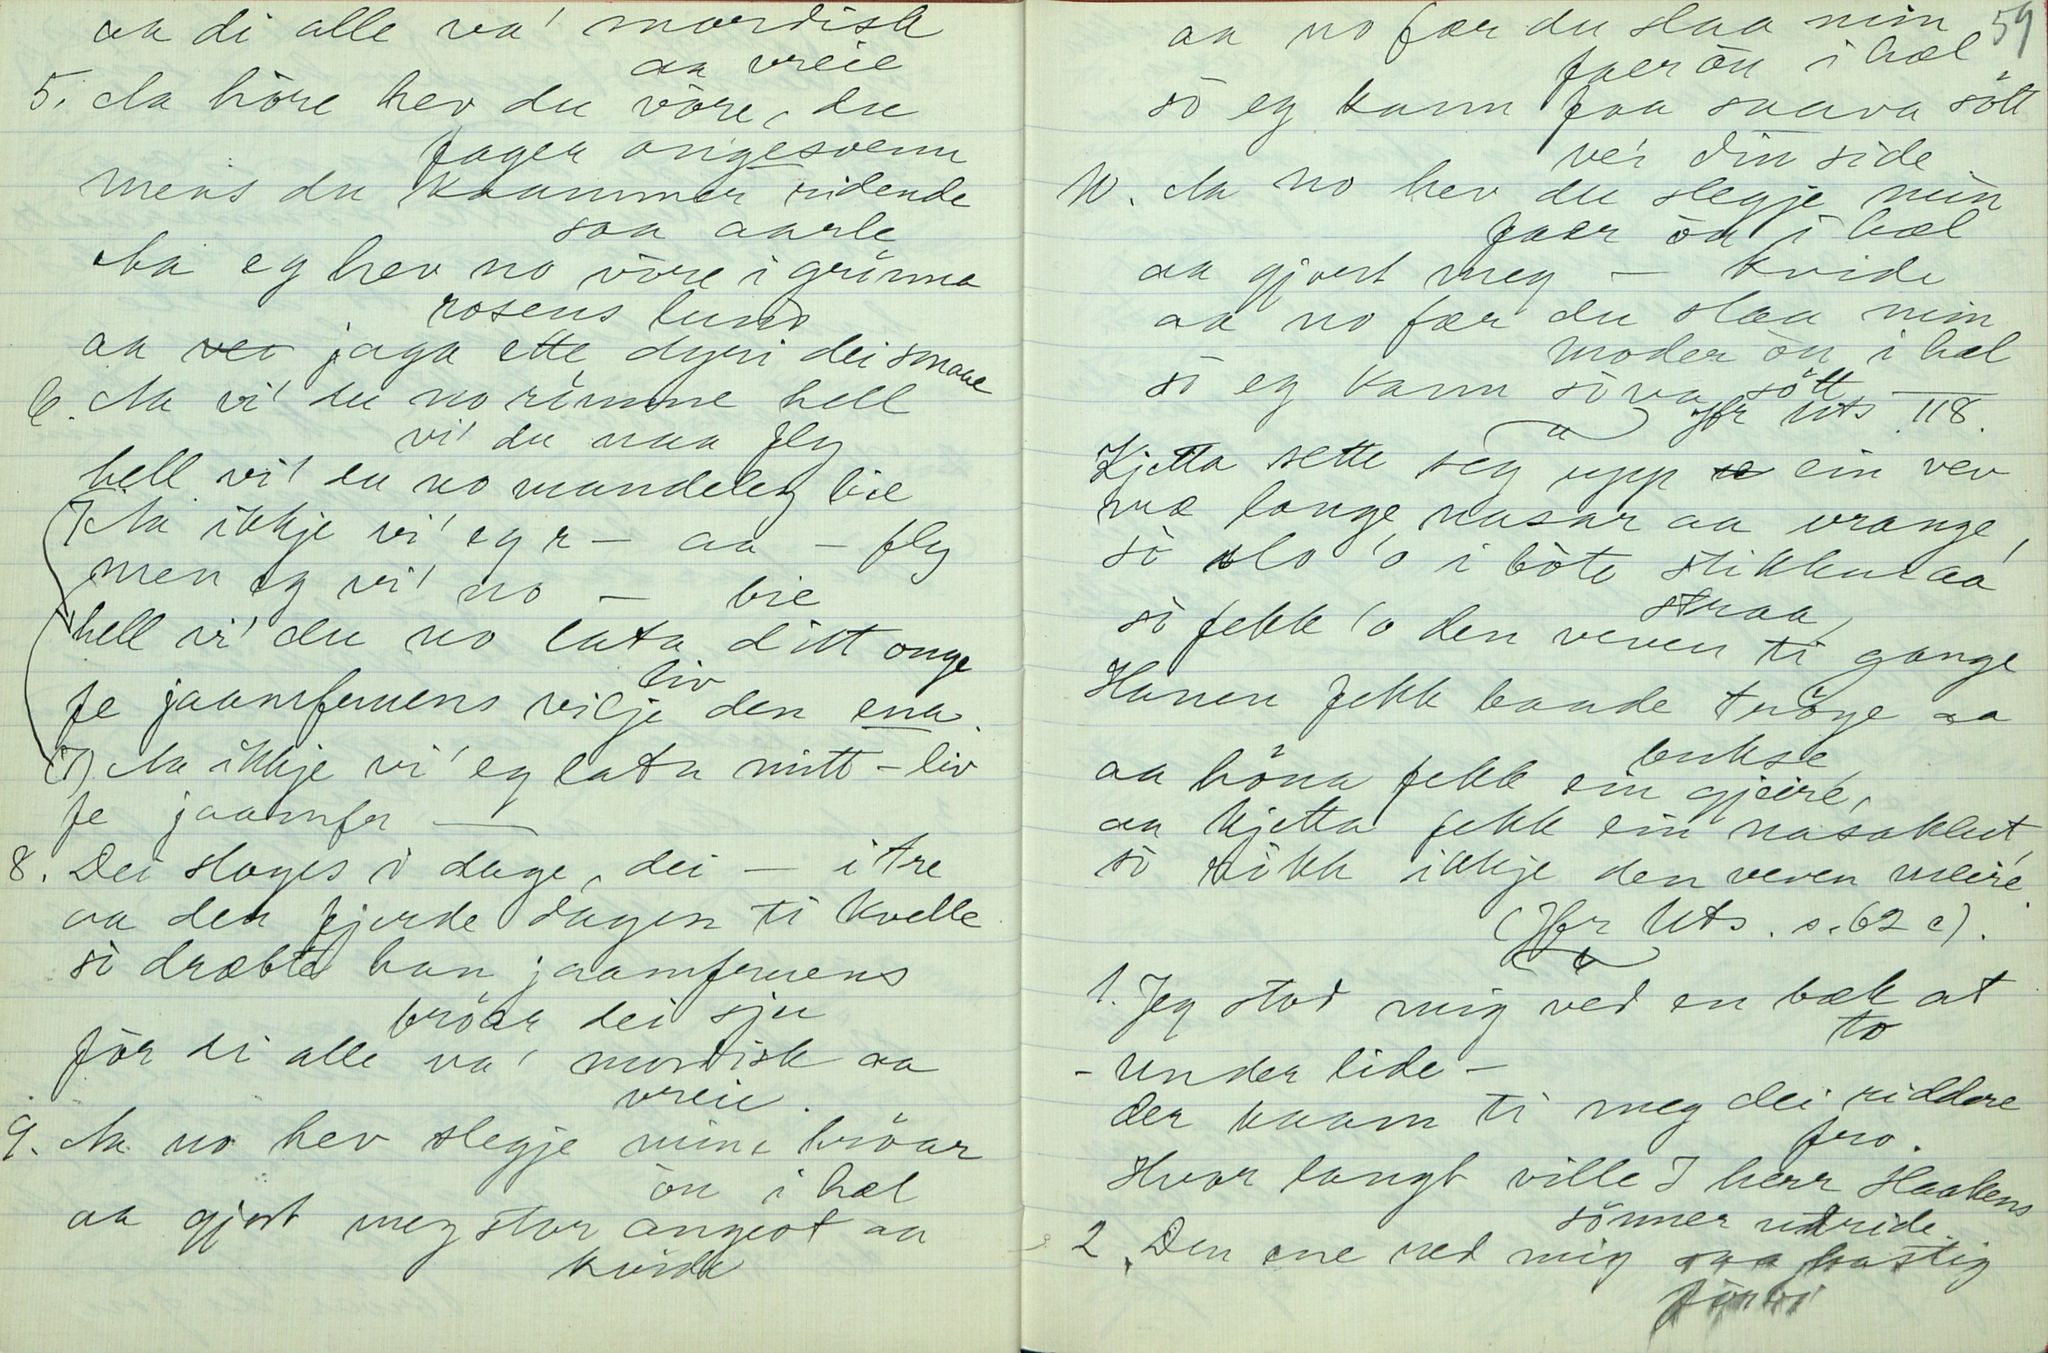 aa di alle va' mordisk
aa vreie
5. Aa höre hev du vöre, du
fager ongesvenn
mens du kaammer ridende
saa aarle
Aa eg hev no vöre i grönna
rosens lund
aa jaga ette dyri dei smaae
6. Aa vi' du no römme hell
vi' du naa fly
hell vi' du no mandeleg bie
7. Aa ikkje vi' eg r — aa — fly
men eg vi' no — bie
hell vi' du no lata ditt onge
liv
fe jaamfruens vilje den ena.
(7) Aa ikkje vi' eg lata mitt — liv
fe jaamfr —
8. Dei sloges i dage, dei — i tre
aa den fjerde dagen ti kvelle
sö dræbte han jaamfruens
bröar dei sju
för di alle va' mordisk aa
vreie.
9. Aa no hev slegje mine bröar
ön i hæl
aa gjort meg stor angest aa
kvide
59
aa no fær du slaa min
faer ön i hæl
sö eg kann faa saava sött
ve'i din side
10. Aa no hev du slegje min
faer ön i hæl
aa gjort meg — kvide
aa no fær du slaa min
moder ön i hæl
sö eg kann söva sött —
Jfr Uts 118.
Kjetta sette seg upp ein vev
mæ lange nasar aa vrange,
sö slo 'o i böte stikkur aa
straa,
sö fekk 'o den veven ti gange
Hanen fekk baade tröye aa
bukse,
aa höna fekk ein gjeire,
aa kjetta fekk ein nasaklut,
sö rikk ikkje den veven meire.
(Jfr Uts. s. 62 c).
1. Jeg stod mig ved en bæk at
to
- under lide -
der kaam ti meg dei riddere
fro.
Hvor langt ville I herr Haakens
sönner udride.
2. Den ene red mig saa hastig
förbi